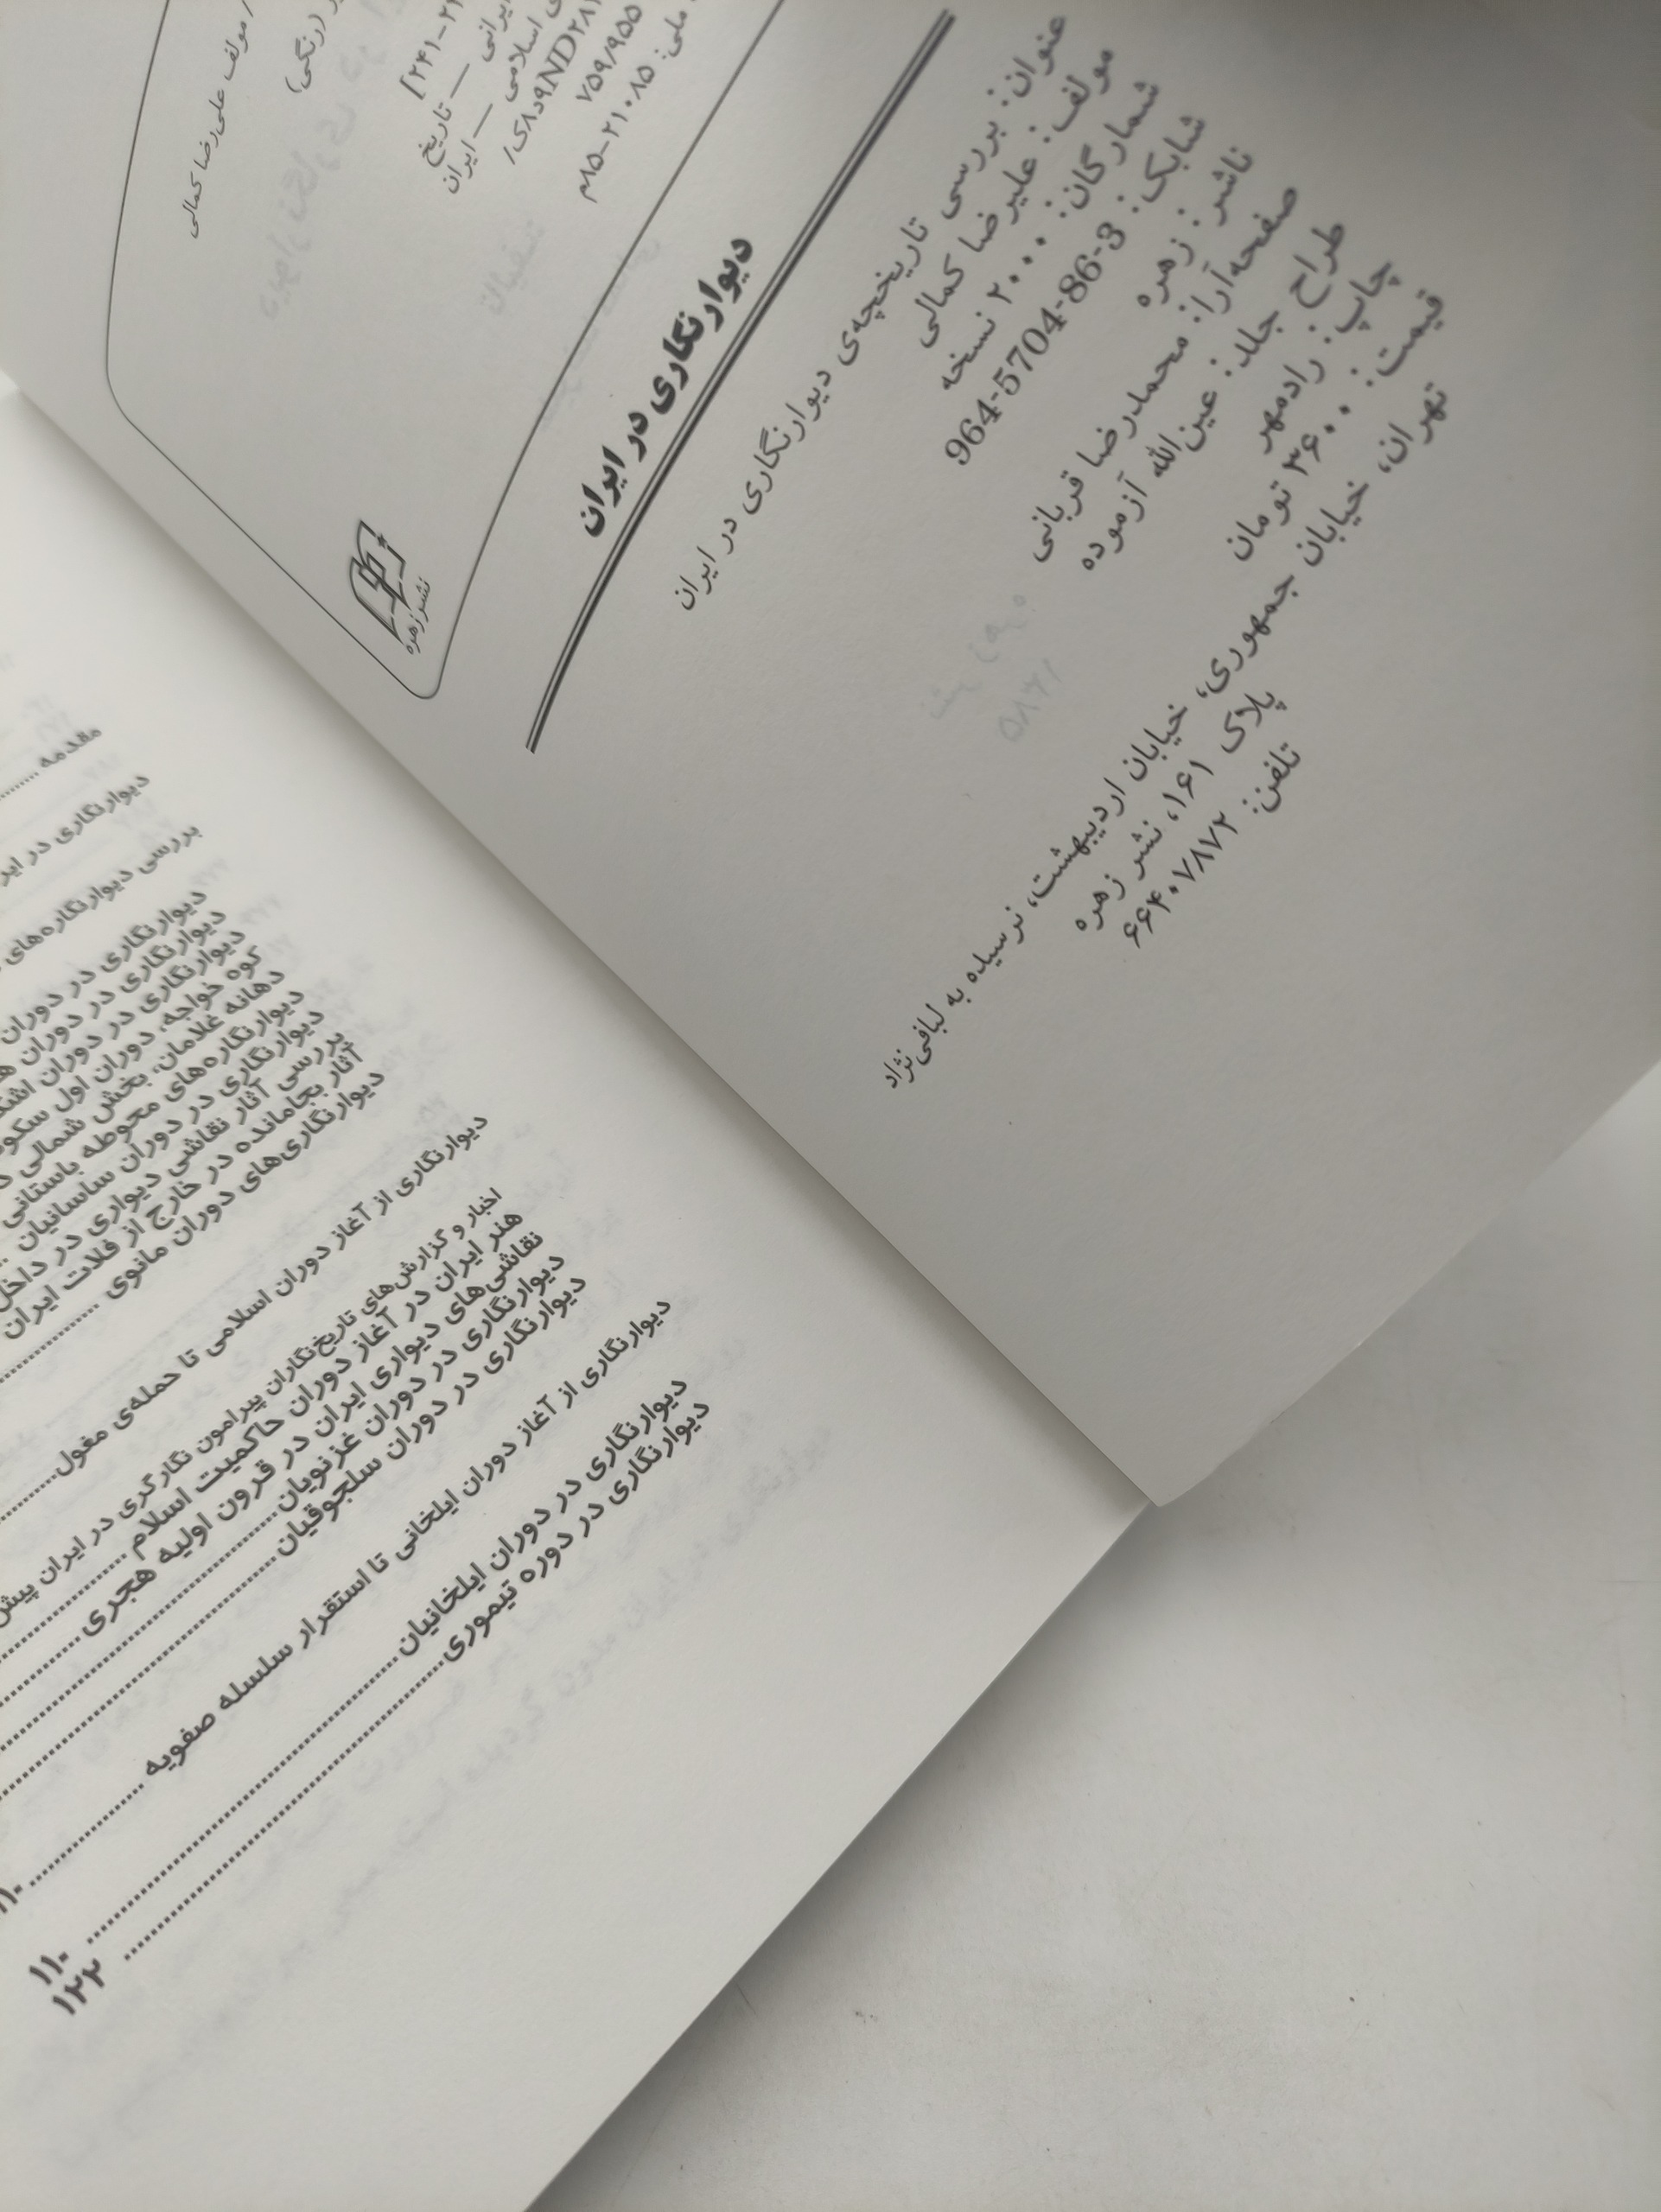 / مولف علی‌رضا کمالی
(رنگی)
[۲۴۱-
ایرانی — تاریخ
اسلامی — ایران
۹د۸ک/ND۲۸
۷۵۹/۹۵۵
ملی: ۲۱۰۸۵-۸۵م
نشر زهره
دیوارنگاری در ایران
عنوان: بررسی تاریخچه‌ی دیوارنگاری در ایران
مولف: علیرضا کمالی
شمارگان: ۲۰۰۰ نسخه
شابک: 964-5704-86-3
ناشر: زهره
صفحه‌آرا: محمدرضا قربانی
طراح جلد: عین‌الله آزموده
چاپ: رادمهر
قیمت: ۳۶۰۰ تومان
تهران، خیابان جمهوری، خیابان اردیبهشت، نرسیده به لبافی‌نژاد
پلاک ۱۶۱، نشر زهره
تلفن: ۶۶۴۰۷۸۷۲
مقدمه
دیوارنگاری در
بررسی دیوارنگاره‌های
دیوارنگاری در دوران
دیوارنگاری در دوران
دیوارنگاری در دوران
کوه خواجه، دوران اول
دهانه غلامان، بخش شمالی
دیوارنگاره‌های محوطه باستانی
دیوارنگاری در دوران ساسانیان
بررسی آثار نقاشی دیواری در داخل
آثار بجامانده در خارج از فلات ایران
دیوارنگاری‌های دوران مانوی
دیوارنگاری از آغاز دوران اسلامی تا حمله‌ی مغول
اخبار و گزارش‌های تاریخ‌نگاران پیرامون نگارگری در ایران پیش
هنر ایران در آغاز دوران حاکمیت اسلام
نقاشی‌های دیواری ایران در قرون اولیه هجری
دیوارنگاری در دوران غزنویان
دیوارنگاری در دوران سلجوقیان
دیوارنگاری از آغاز دوران ایلخانی تا استقرار سلسله صفویه
دیوارنگاری در دوران ایلخانیان ۱۱۰
دیوارنگاری در دوره تیموری ۱۲۲